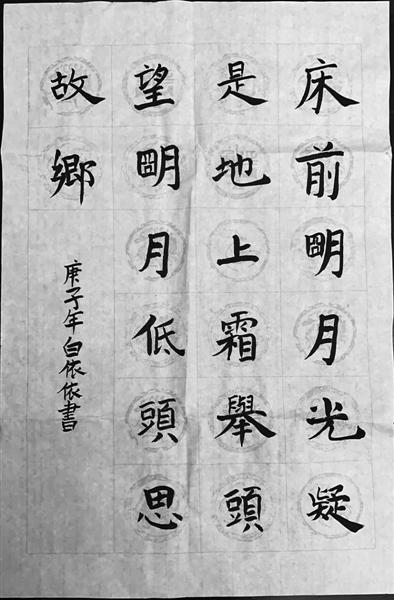 床前明月光疑
是地上霜舉頭
望明月低頭思
故鄉
庚子年白依依書